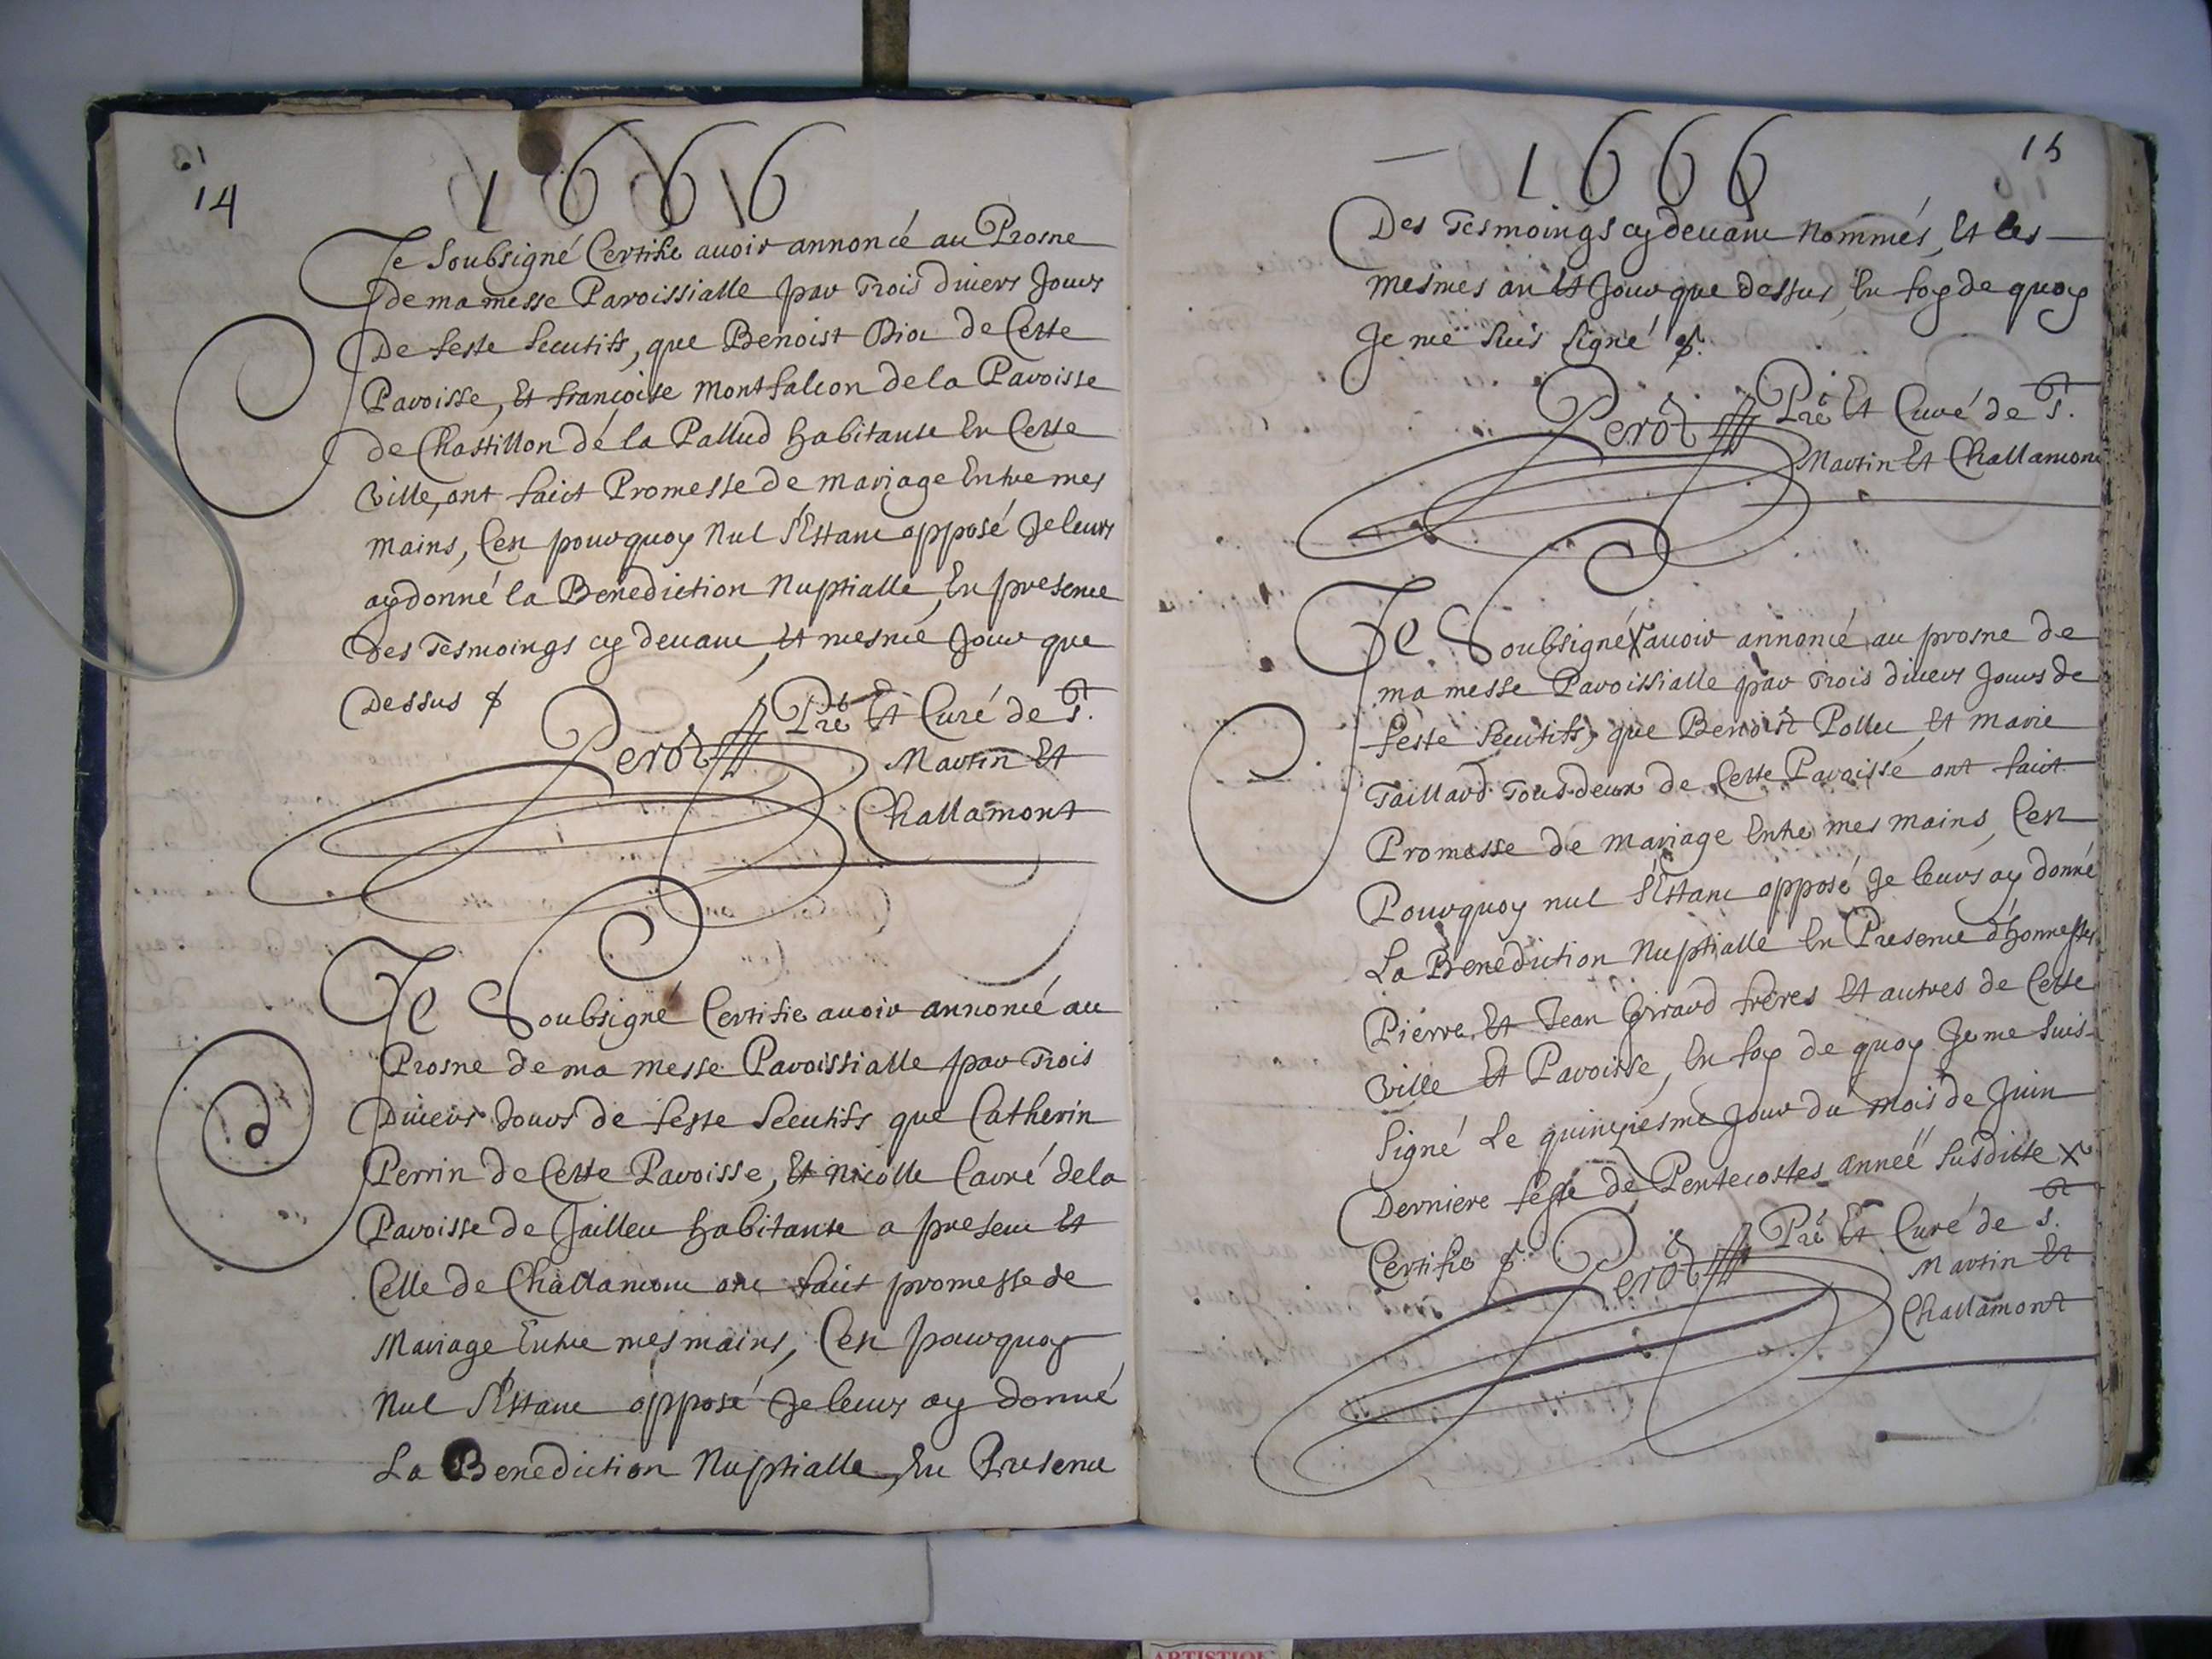 14
1666
Je Soubsigné Certifie auoir annoncé au Prosne
de ma messe Paroissialle par Trois diuers Jours
De feste Secutifs, que Benoist Diot de Cette
Paroisse, Et françoise Montfalcon de la Paroisse
de Chastillon de la Pallud habitante En Cette
Ville, ont faict Promesse de mariage Entre mes
mains, Cest pourquoy Nul s'Estant opposé Je leurs
ay donné la Benediction Nuptialle, En presence
des Tesmoings cy deuant, Et mesme Jour que
Dessus
Perot Pre Et Curé de St.
Martin Et
Challamont
Je Soubsigné Certifie auoir annoncé au
Prosne de ma messe Paroissialle par Trois
Diuers Jours de feste Secutifs que Catherin
Perrin de Cette Paroisse, Et Nicolle Carré de la
Paroisse de Jailleu habitante a present Et
Celle de Challamont ont faict promesse de
Mariage Entre mes mains, Cest pourquoy
Nul s'Estant opposé Je leurs ay donné
La Benediction Nuptialle, En Presence
15
1666
Des Tesmoings cy deuant Nommés, Et les
mesmes an Et Jour que dessus, En foy de quoy
Je me suis signé
Perot Pre Et Curé de St.
Martin Et Challamont
Je Soubsigné x auoir annoncé au prosne de
ma messe Paroissialle par Trois diuers Jours de
feste Secutifs, que Benoist Pollet, Et Marie
Taillard Tous deux de Cette Paroisse ont faict
Promesse de mariage Entre mes mains, Cest
Pourquoy nul s'Estant opposé Je leurs ay donné
La Benediction Nuptialle En Presence d'honnestes
Pierre, Et Jean Girard freres Et autres de Cette
Ville Et Paroisse, En foy de quoy Je me suis
signé Le quinziesme Jour du mois de Juin
Derniere feste de Pentecostes année susditte x
Certifie Perot Pre Et Curé de St.
Martin Et
Challamont